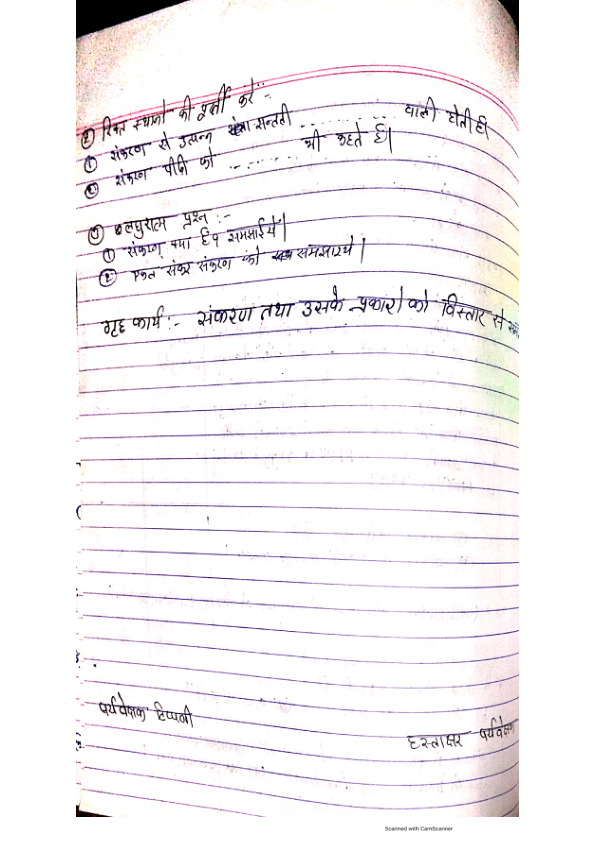 ② रिक्त स्थानों की पूर्ती करे :-
① संकरण से उत्पन्न सन्तती ............ वाली होती है।
② संकरण पीढी को ........ भी कहते है।
③ लघुरात्म प्रश्न :-
① संकरण क्या है? समझाईये।
② एकल संकर संकरण को समझाइये।
गृह कार्य :- संकरण तथा उसके प्रकारो को विस्तार से
पर्यवेक्षक टिप्पणी
हस्ताक्षर पर्यवेक्षक
Scanned with CamScanner